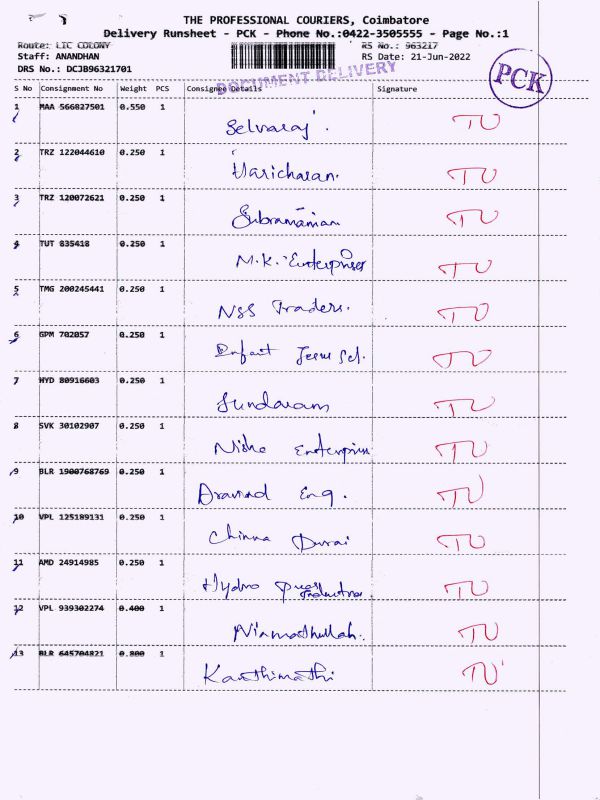 THE PROFESSIONAL COURIERS, Coimbatore
Delivery Runsheet - PCK - Phone No.:0422-3505555 - Page No.:1
Route: LIC COLONY RS No.: 963217
Staff: ANANDHAN RS Date: 21-Jun-2022
DRS No.: DCJB96321701
DOCUMENT DELIVERY
PCK
S No Consignment No Weight PCS Consignee Details Signature
1 MAA 566827501 0.550 1
Selvaraj. TU
2 TRZ 122044610 0.250 1
Haricharan. TU
3 TRZ 120072621 0.250 1
Subramanian TU
4 TUT 835418 0.250 1
M.K. Enterprises TU
5 TMG 200245441 0.250 1
NSS Traders. TU
6 GPM 702857 0.250 1
Infant Jesus Scl. TU
7 HYD 80916603 0.250 1
Sundaram TU
8 SVK 30102907 0.250 1
Nisha Enterprises TU
9 BLR 1900768769 0.250 1
Aravind Eng. TU
10 VPL 125189131 0.250 1
Chinna Durai TU
11 AMD 24914985 0.250 1
Hydro TU
12 VPL 939302274 0.400 1
Niamathullah. TU
13 BLR 645704821 0.800 1
Kanthimathi TU